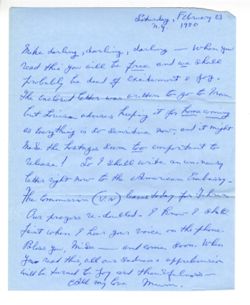 Saturday, February 23
N.Y. 1980
Mike darling, darling, darling — When you
read this you will be free and we shall
probably be dead of excitement & joy.
The enclosed letter was written to go to Iran
but Louisa advises keeping it for homecoming
as everything is so sensitive now, and it might
make the hostages seem too important to
release! So I shall write an
letter right now to the American Embassy.
The Commission (UN) leaves today for Tehran
Our prayers re-doubled. I know I shall
faint when I hear your voice on the phone.
Bless you, Mike — and come down. When
you read this, all our sadness & apprehension
will be turned to joy and thankfulness —
All my love Mum.